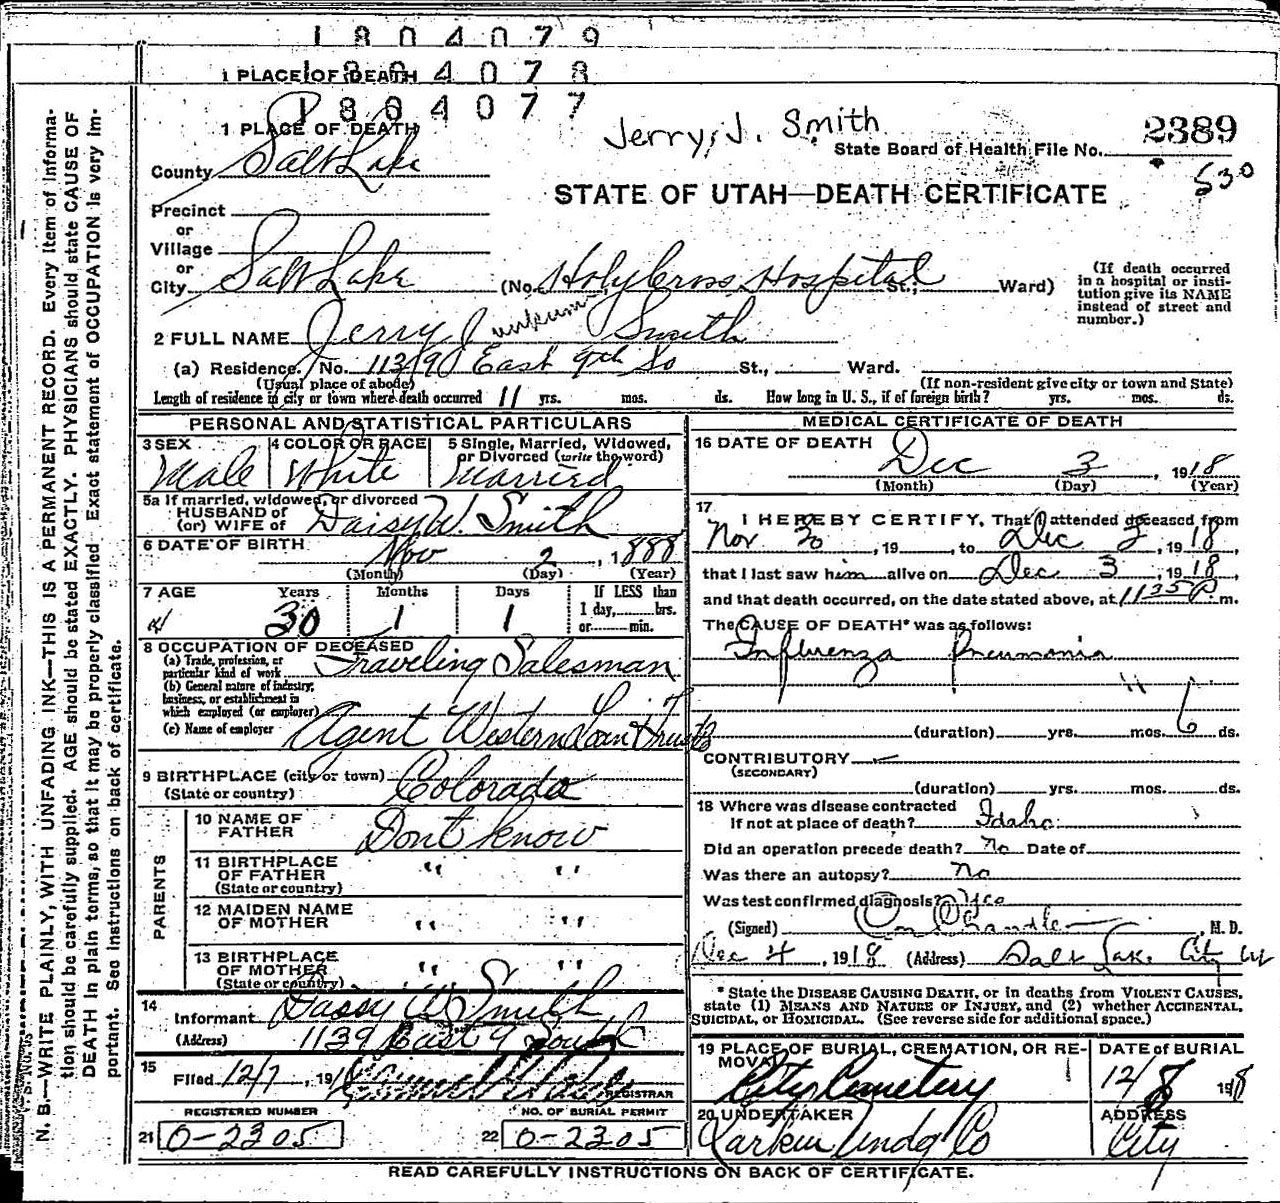 1804079
1 PLACE OF DEATH 1804078
1804077
1 PLACE OF DEATH
Jerry, J. Smith
2389
State Board of Health File No.
530
County Salt Lake
STATE OF UTAH—DEATH CERTIFICATE
Precinct
or
Village
or
City Salt Lake (No. Holy Cross Hospital St.; Ward)
(If death occurred in a hospital or institution give its NAME instead of street and number.)
2 FULL NAME Jerry J Smith
(a) Residence. No. 1139 East 9th So St., Ward.
(Usual place of abode) (If non-resident give city or town and State)
Length of residence in city or town where death occurred 11 yrs. mos. ds. How long in U. S., if of foreign birth? yrs. mos. ds.
PERSONAL AND STATISTICAL PARTICULARS
3 SEX 4 COLOR OR RACE 5 Single, Married, Widowed, or Divorced (write the word)
Male White Married
5a If married, widowed, or divorced
HUSBAND of
(or) WIFE of Daisy W. Smith
6 DATE OF BIRTH Nov 2, 1888
(Month) (Day) (Year)
7 AGE Years Months Days If LESS than
1 day, hrs.
or min.
30 1 1
8 OCCUPATION OF DECEASED
(a) Trade, profession, or particular kind of work Traveling Salesman
(b) General nature of industry, business, or establishment in which employed (or employer)
(c) Name of employer Agent Western Loan Trust Co
9 BIRTHPLACE (city or town) Colorado
(State or country)
PARENTS
10 NAME OF FATHER Dont know
11 BIRTHPLACE OF FATHER " "
(State or country)
12 MAIDEN NAME OF MOTHER " "
13 BIRTHPLACE OF MOTHER " "
(State or country)
14 Informant Dassy W Smith
(Address) 1139 East 9 South
15 Filed 12/7, 191 REGISTRAR
REGISTERED NUMBER NO. OF BURIAL PERMIT
21 0-2305 22 0-2305
MEDICAL CERTIFICATE OF DEATH
16 DATE OF DEATH Dec 3, 1918
(Month) (Day) (Year)
17 I HEREBY CERTIFY, That I attended deceased from
Nov 30, 19, to Dec 3, 1918,
that I last saw him alive on Dec 3, 1918,
and that death occurred, on the date stated above, at 1135 P. m.
The CAUSE OF DEATH* was as follows:
Influenza Pneumonia
" 6
(duration) yrs. mos. ds.
CONTRIBUTORY
(SECONDARY)
(duration) yrs. mos. ds.
18 Where was disease contracted
If not at place of death? Idaho
Did an operation precede death? No Date of
Was there an autopsy? No
Was test confirmed diagnosis? Yes
(Signed) , M. D.
Dec 4, 1918 (Address) Salt Lake City Ut
* State the DISEASE CAUSING DEATH, or in deaths from VIOLENT CAUSES,
state (1) MEANS AND NATURE OF INJURY, and (2) whether ACCIDENTAL,
SUICIDAL, or HOMICIDAL. (See reverse side for additional space.)
19 PLACE OF BURIAL, CREMATION, OR REMOVAL DATE of BURIAL
City Cemetery 12/8 1918
20 UNDERTAKER ADDRESS
Larkin Undg Co City
READ CAREFULLY INSTRUCTIONS ON BACK OF CERTIFICATE.
N. B.—WRITE PLAINLY, WITH UNFADING INK—THIS IS A PERMANENT RECORD. Every item of information should be carefully supplied. AGE should be stated EXACTLY. PHYSICIANS should state CAUSE OF DEATH in plain terms, so that it may be properly classified. Exact statement of OCCUPATION is very important. See instructions on back of certificate.